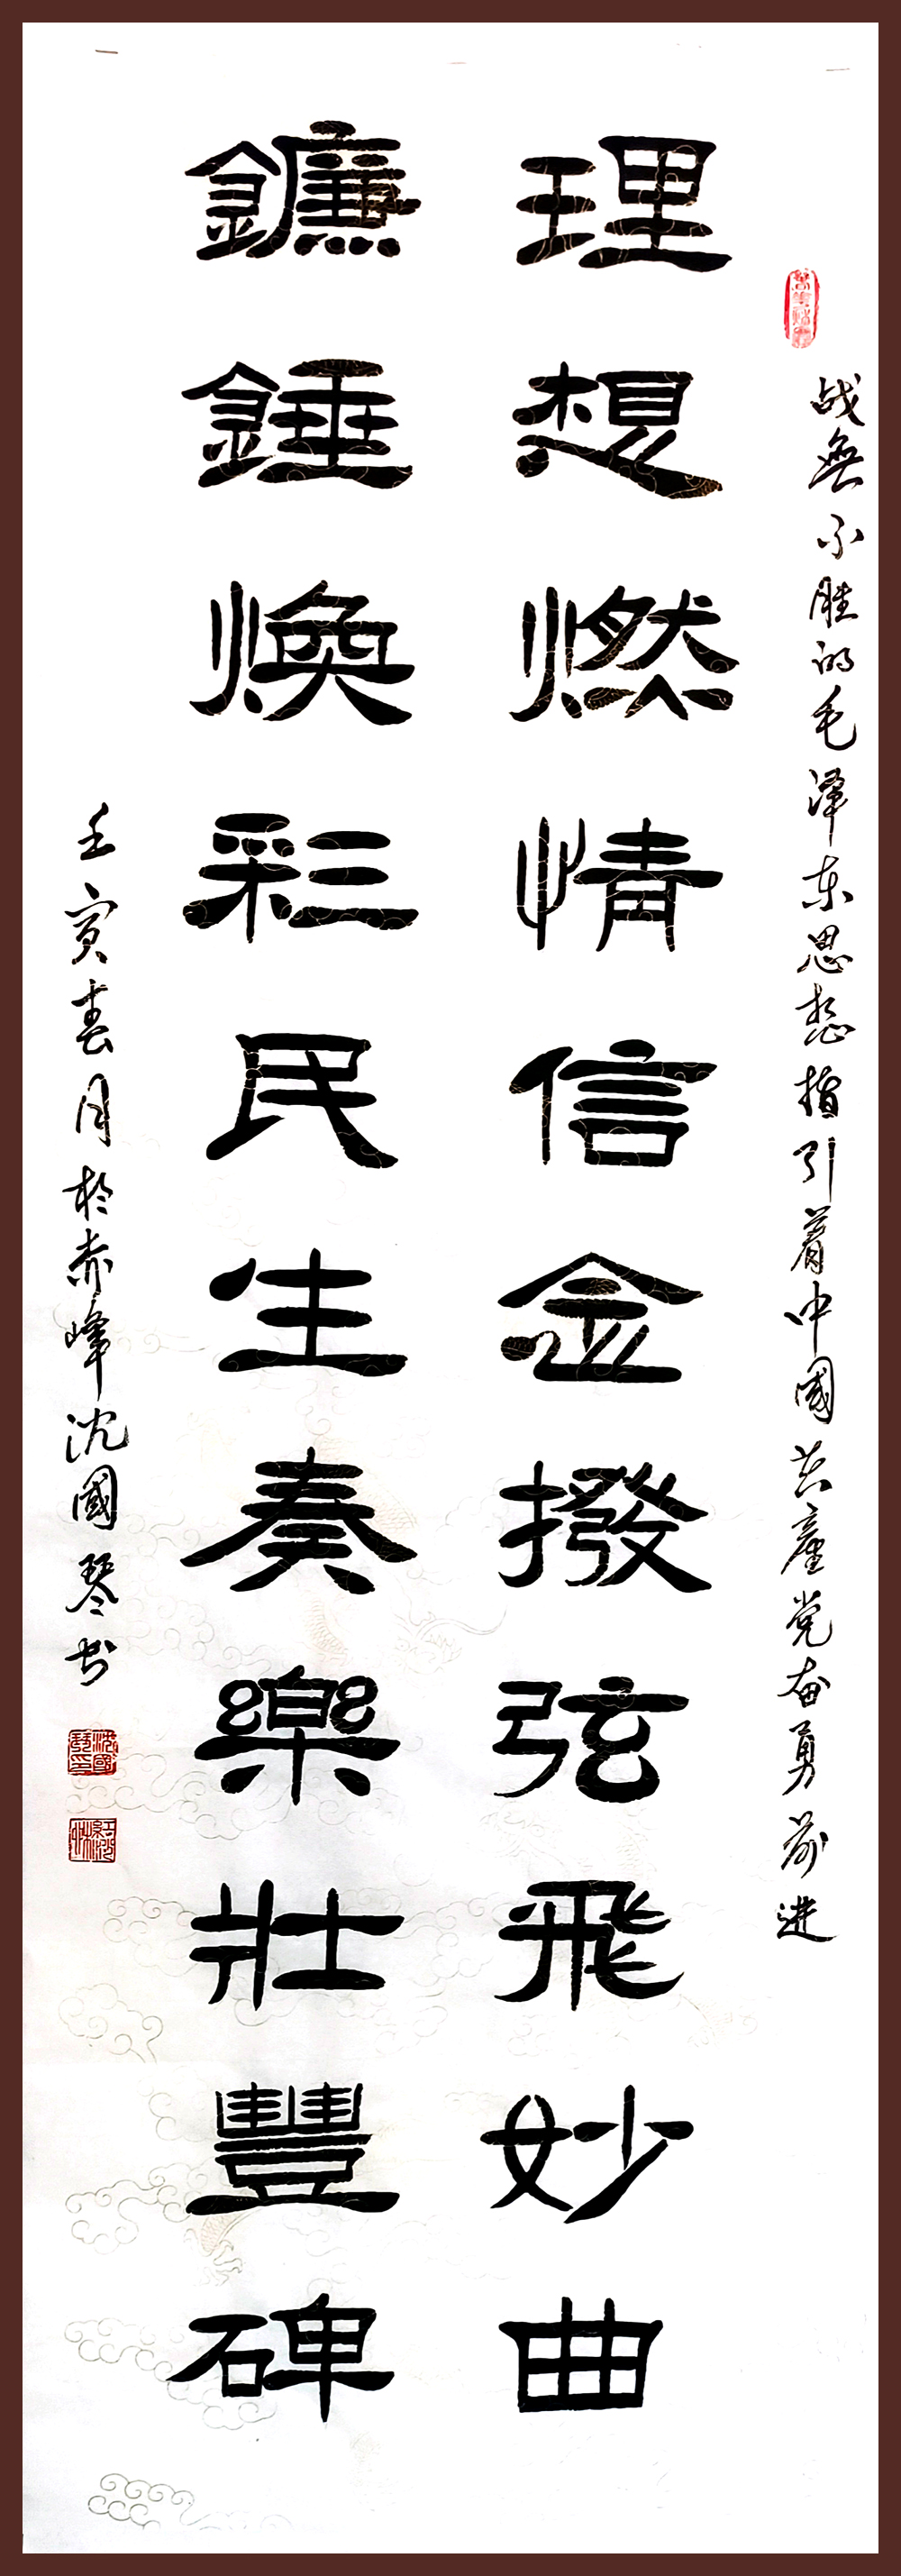 战無不胜的毛泽东思想指引着中國共產党奋勇前进
理想燃情信念撥弦飛妙曲
鐮錘焕彩民生奏樂壯豐碑
壬寅春月於赤峰沈國琴书
沈國琴印